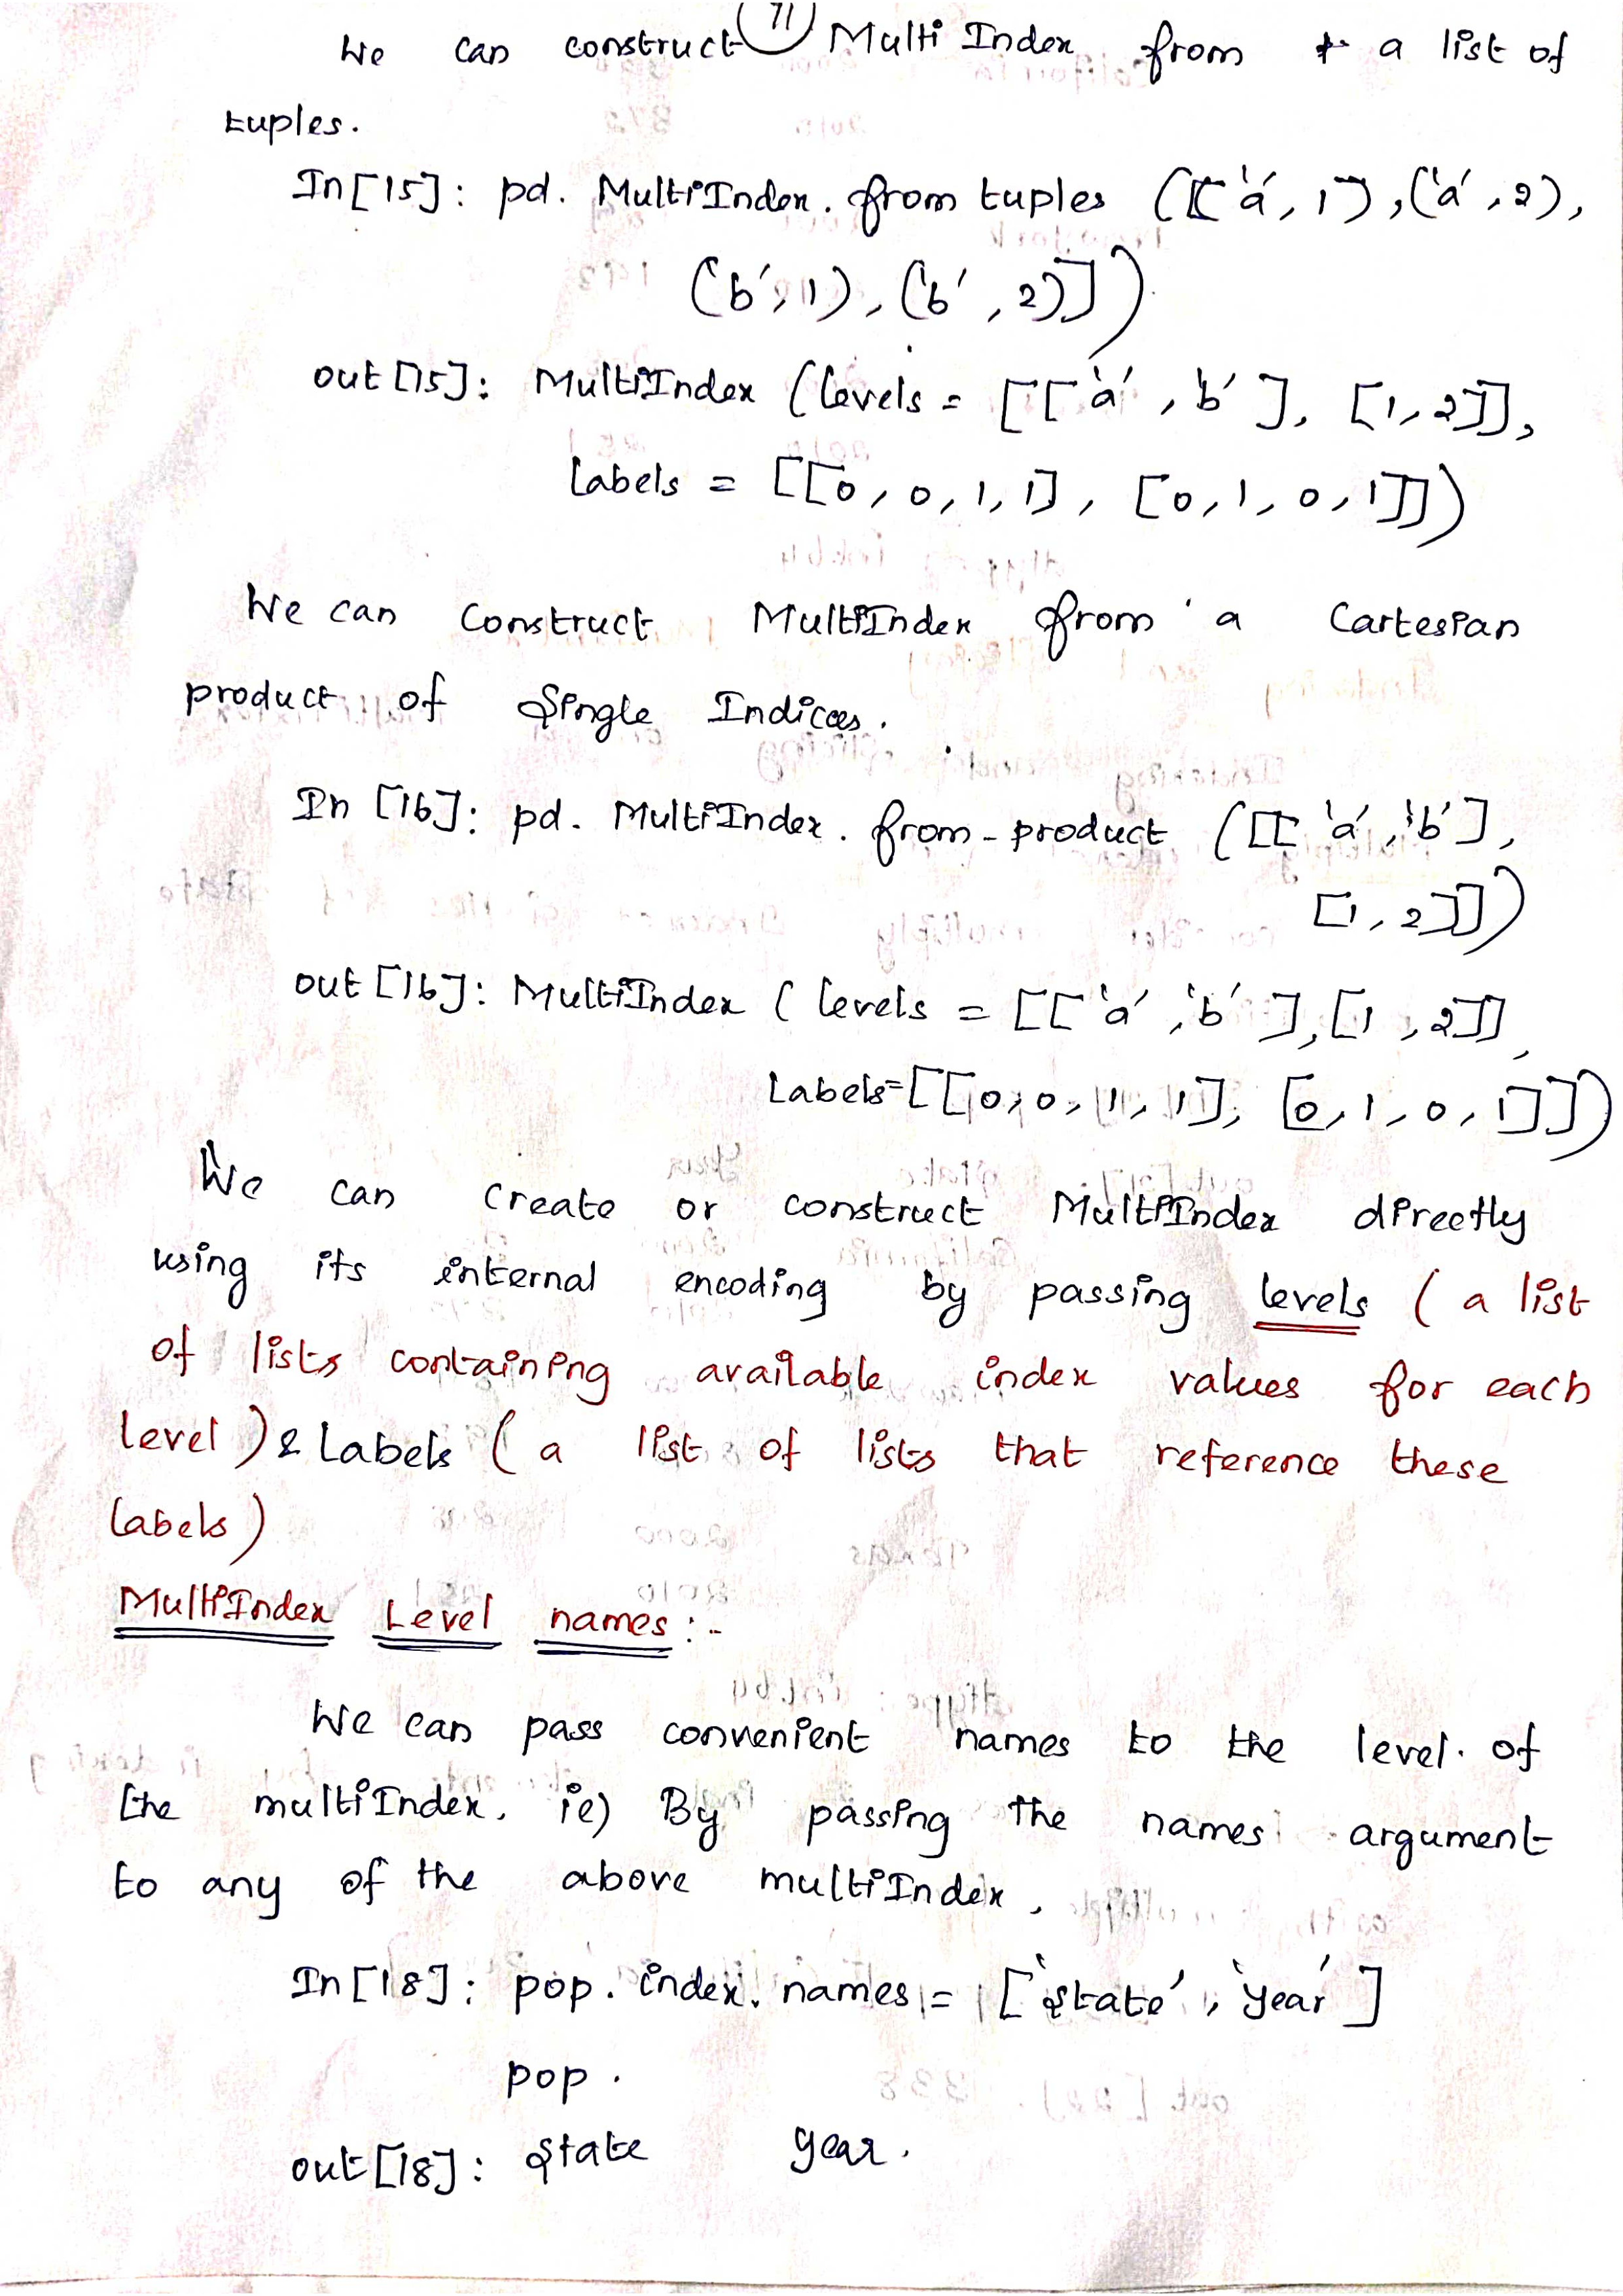 71
We can construct Multi Index from a list of
tuples.
In[15]: pd. MultiIndex. from tuples ([('a', 1), ('a', 2),
('b', 1), ('b', 2)])
out[15]: MultiIndex (levels = [['a', 'b'], [1, 2]],
labels = [[0, 0, 1, 1], [0, 1, 0, 1]])
We can construct MultiIndex from a Cartesian
product of Single Indices.
In [16]: pd. MultiIndex. from-product ([['a', 'b'],
[1, 2]])
out[16]: MultiIndex (levels = [['a', 'b'], [1, 2]],
Labels=[[0, 0, 1, 1], [0, 1, 0, 1]])
We can create or construct MultiIndex directly
using its internal encoding by passing levels (a list
of lists containing available index values for each
level) & Labels (a list of lists that reference these
labels)
MultiIndex Level names:-
We can pass convenient names to the level. of
the multiIndex. ie) By passing the names argument
to any of the above multiIndex.
In[18]: pop. index. names = ['state', 'year']
pop.
out[18]: state year.